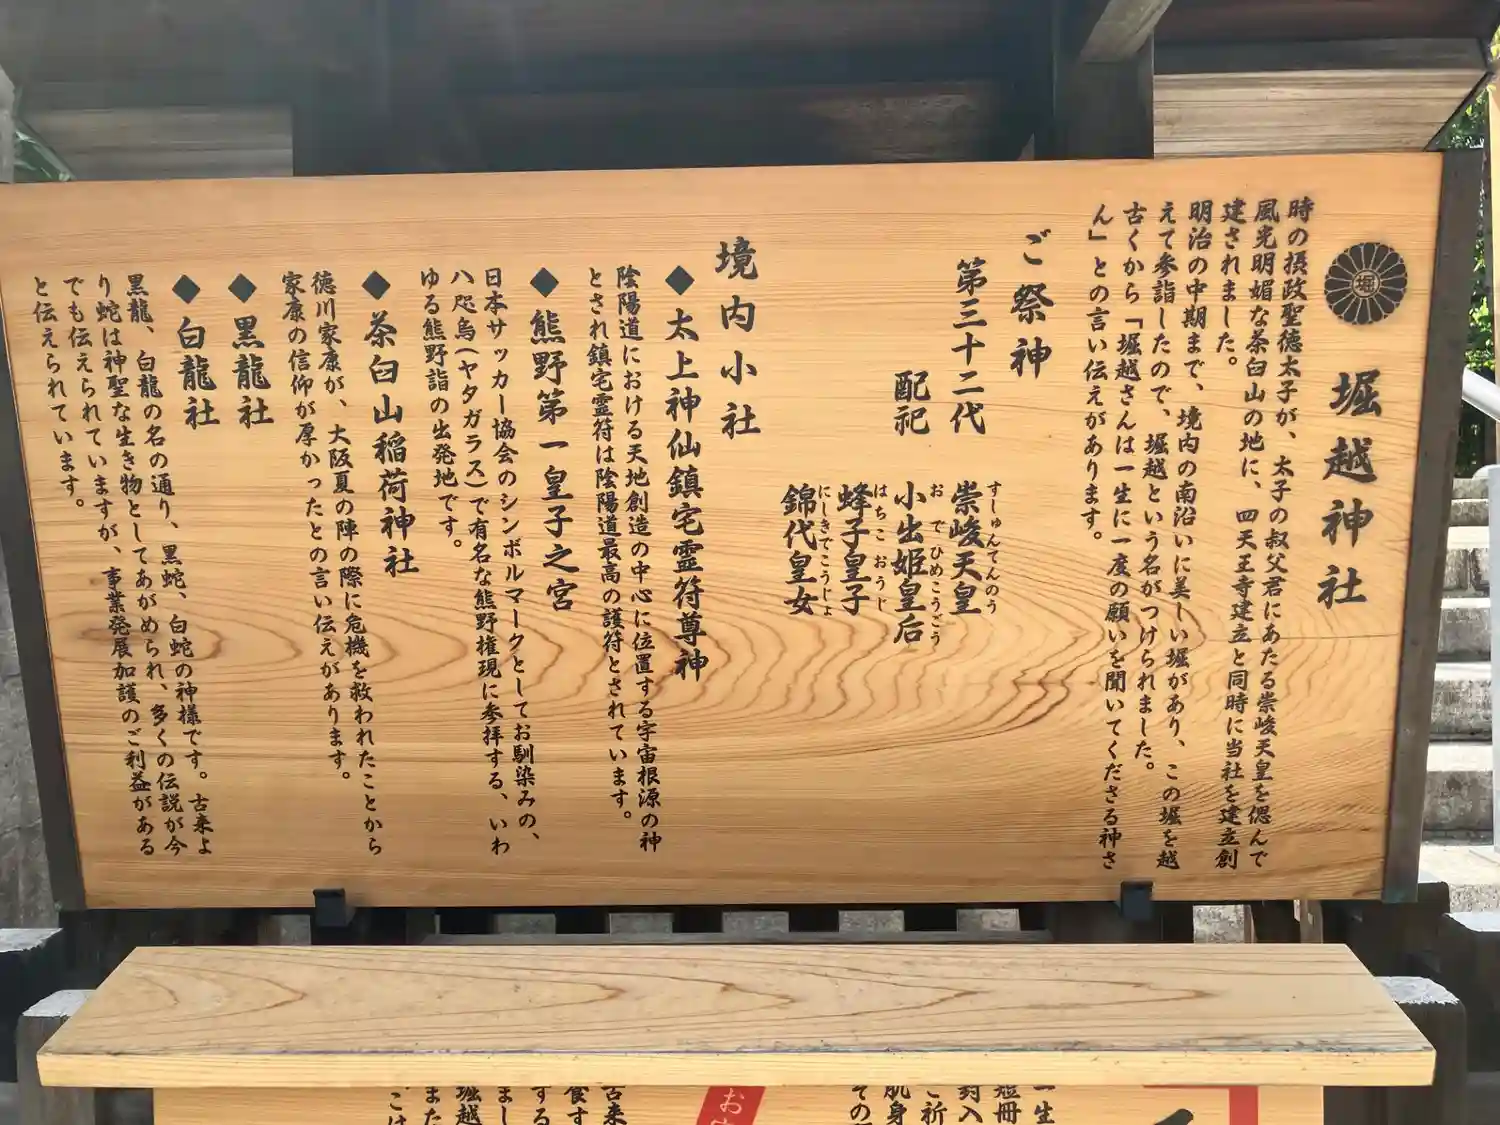 堀
堀越神社
時の摂政聖徳太子が、太子の叔父君にあたる崇峻天皇を偲んで
風光明媚な茶臼山の地に、四天王寺建立と同時に当社を建立創
建されました。
明治の中期まで、境内の南沿いに美しい堀があり、この堀を越
えて参詣したので、堀越という名がつけられました。
古くから「堀越さんは一生に一度の願いを聞いてくださる神さ
ん」との言い伝えがあります。
ご祭神
第三十二代 崇峻天皇
すしゅんてんのう
配祀 小出姫皇后
おでひめこうごう
蜂子皇子
はちこおうじ
錦代皇女
にしきでこうじょ
境内小社
◆太上神仙鎮宅霊符尊神
陰陽道における天地創造の中心に位置する宇宙根源の神
とされ鎮宅霊符は陰陽道最高の護符とされています。
◆熊野第一皇子之宮
日本サッカー協会のシンボルマークとしてお馴染みの、
八咫烏(ヤタガラス)で有名な熊野権現に参拝する、いわ
ゆる熊野詣の出発地です。
◆茶臼山稲荷神社
徳川家康が、大阪夏の陣の際に危機を救われたことから
家康の信仰が厚かったとの言い伝えがあります。
◆黒龍社
◆白龍社
黒龍、白龍の名の通り、黒蛇、白蛇の神様です。古来よ
り蛇は神聖な生き物としてあがめられ、多くの伝説が今
でも伝えられていますが、事業発展加護のご利益がある
と伝えられています。
一生
短冊
封入
ご祈
肌身
その
お
古来
食す
する
まし
堀越
また
こけ